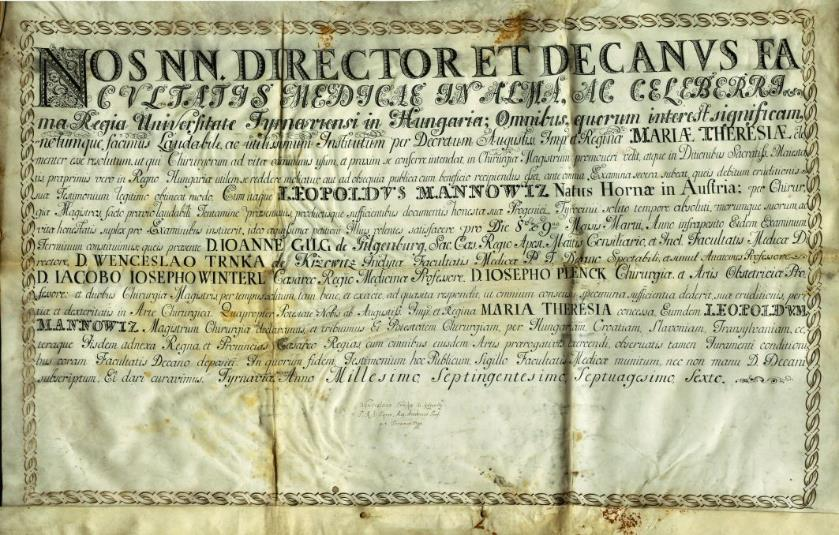 NOS NN. DIRECTOR ET DECANVS FA
CVLTATIS MEDICAE IN ALMA, AC CELEBERRI
ma Regia Universitate Tyrnaviensi in Hungaria; Omnibus, quorum interest significam,
notumque facimus Laudabili, ac utilissimum Institutum per Decretum Augustis. Imp. et Reginæ MARIÆ THERESIÆ, cle
menter esse resolutum, ut qui Chirurgorum ad vitæ communis usum, et praxim se conferre intendat, in Chirurgia Magistrum promoveri velit, atque in Ditionibus Sacratiss. Majesta
tis in Regno Hungariæ utilem se reddere
sua Testimonium legitimo modo. Cum itaque LEOPOLDVS MANNOWIZ Natus Hornæ in Austria; per Chirur
giæ Magistros, facto prævio laudabili Tentamine præsentatus, productisque sufficientibus documentis honesta sua Progeniei, Tyrocinii soluto tempore absoluti, morumque suorum, ac
vitæ honestatis suplex pro Examinibus institerit, ideo æquissima petitioni Hujus volentes satisfacere pro Die 8va et 9na Mensis Martii, Anno infrascripto Eidem Examinum
Terminum constituimus; queis præsente D. IOANNE GILG. de Gilgenburg, Sac. Cæs. Regio Apos. Mattis Consiliario, et Incl. Facultatis Medicæ D
rectore, D. WENCESLAO TRNKA de Krzowitz Inclytæ Facultatis Medicæ P. T. Decano Spectabili, et simul Anatomes Professore
D. IACOBO IOSEPHO WINTERL Cæsareo Regio Medicinæ Professore. D. IOSEPHO PLENCK Chirurgiæ, et Artis Obstetriciæ Pro
fessore; et duobus Chirurgiæ Magistris per tempus solitum tam bene, et exacte, ad quæsita respondit, ut omnium consensu specimina sufficientia dederit suæ eruditionis, peri
tiæ, et dexteritatis in Arte Chirurgica. Quapropter Potestate Nobis ab Augustiss. Imp. et Regina MARIA THERESIA concessa, Eumdem LEOPOLDVM
MANNOWIZ Magistrum Chirurgiæ declaramus, et tribuimus Ei Potestatem Chirurgiam, per Hungariam, Croatiam, Slavoniam, Transylvaniam, cæ,
teraque Iisdem adnexa Regna, et Provincias Cæsareo Regias cum omnibus ejusdem Artis prærogativis exercendi, observatis tamen Juramenti conditioni
bus coram Facultatis Decano depositi. In quorum fidem, Testimonium hoc Publicum Sigillo Facultatis Medicæ munitum, nec non manu D. Decani
subscriptum. Et dari curavimus. Tyrnaviæ Anno Millesimo, Septingentesimo, Septuagesimo, Sexto.